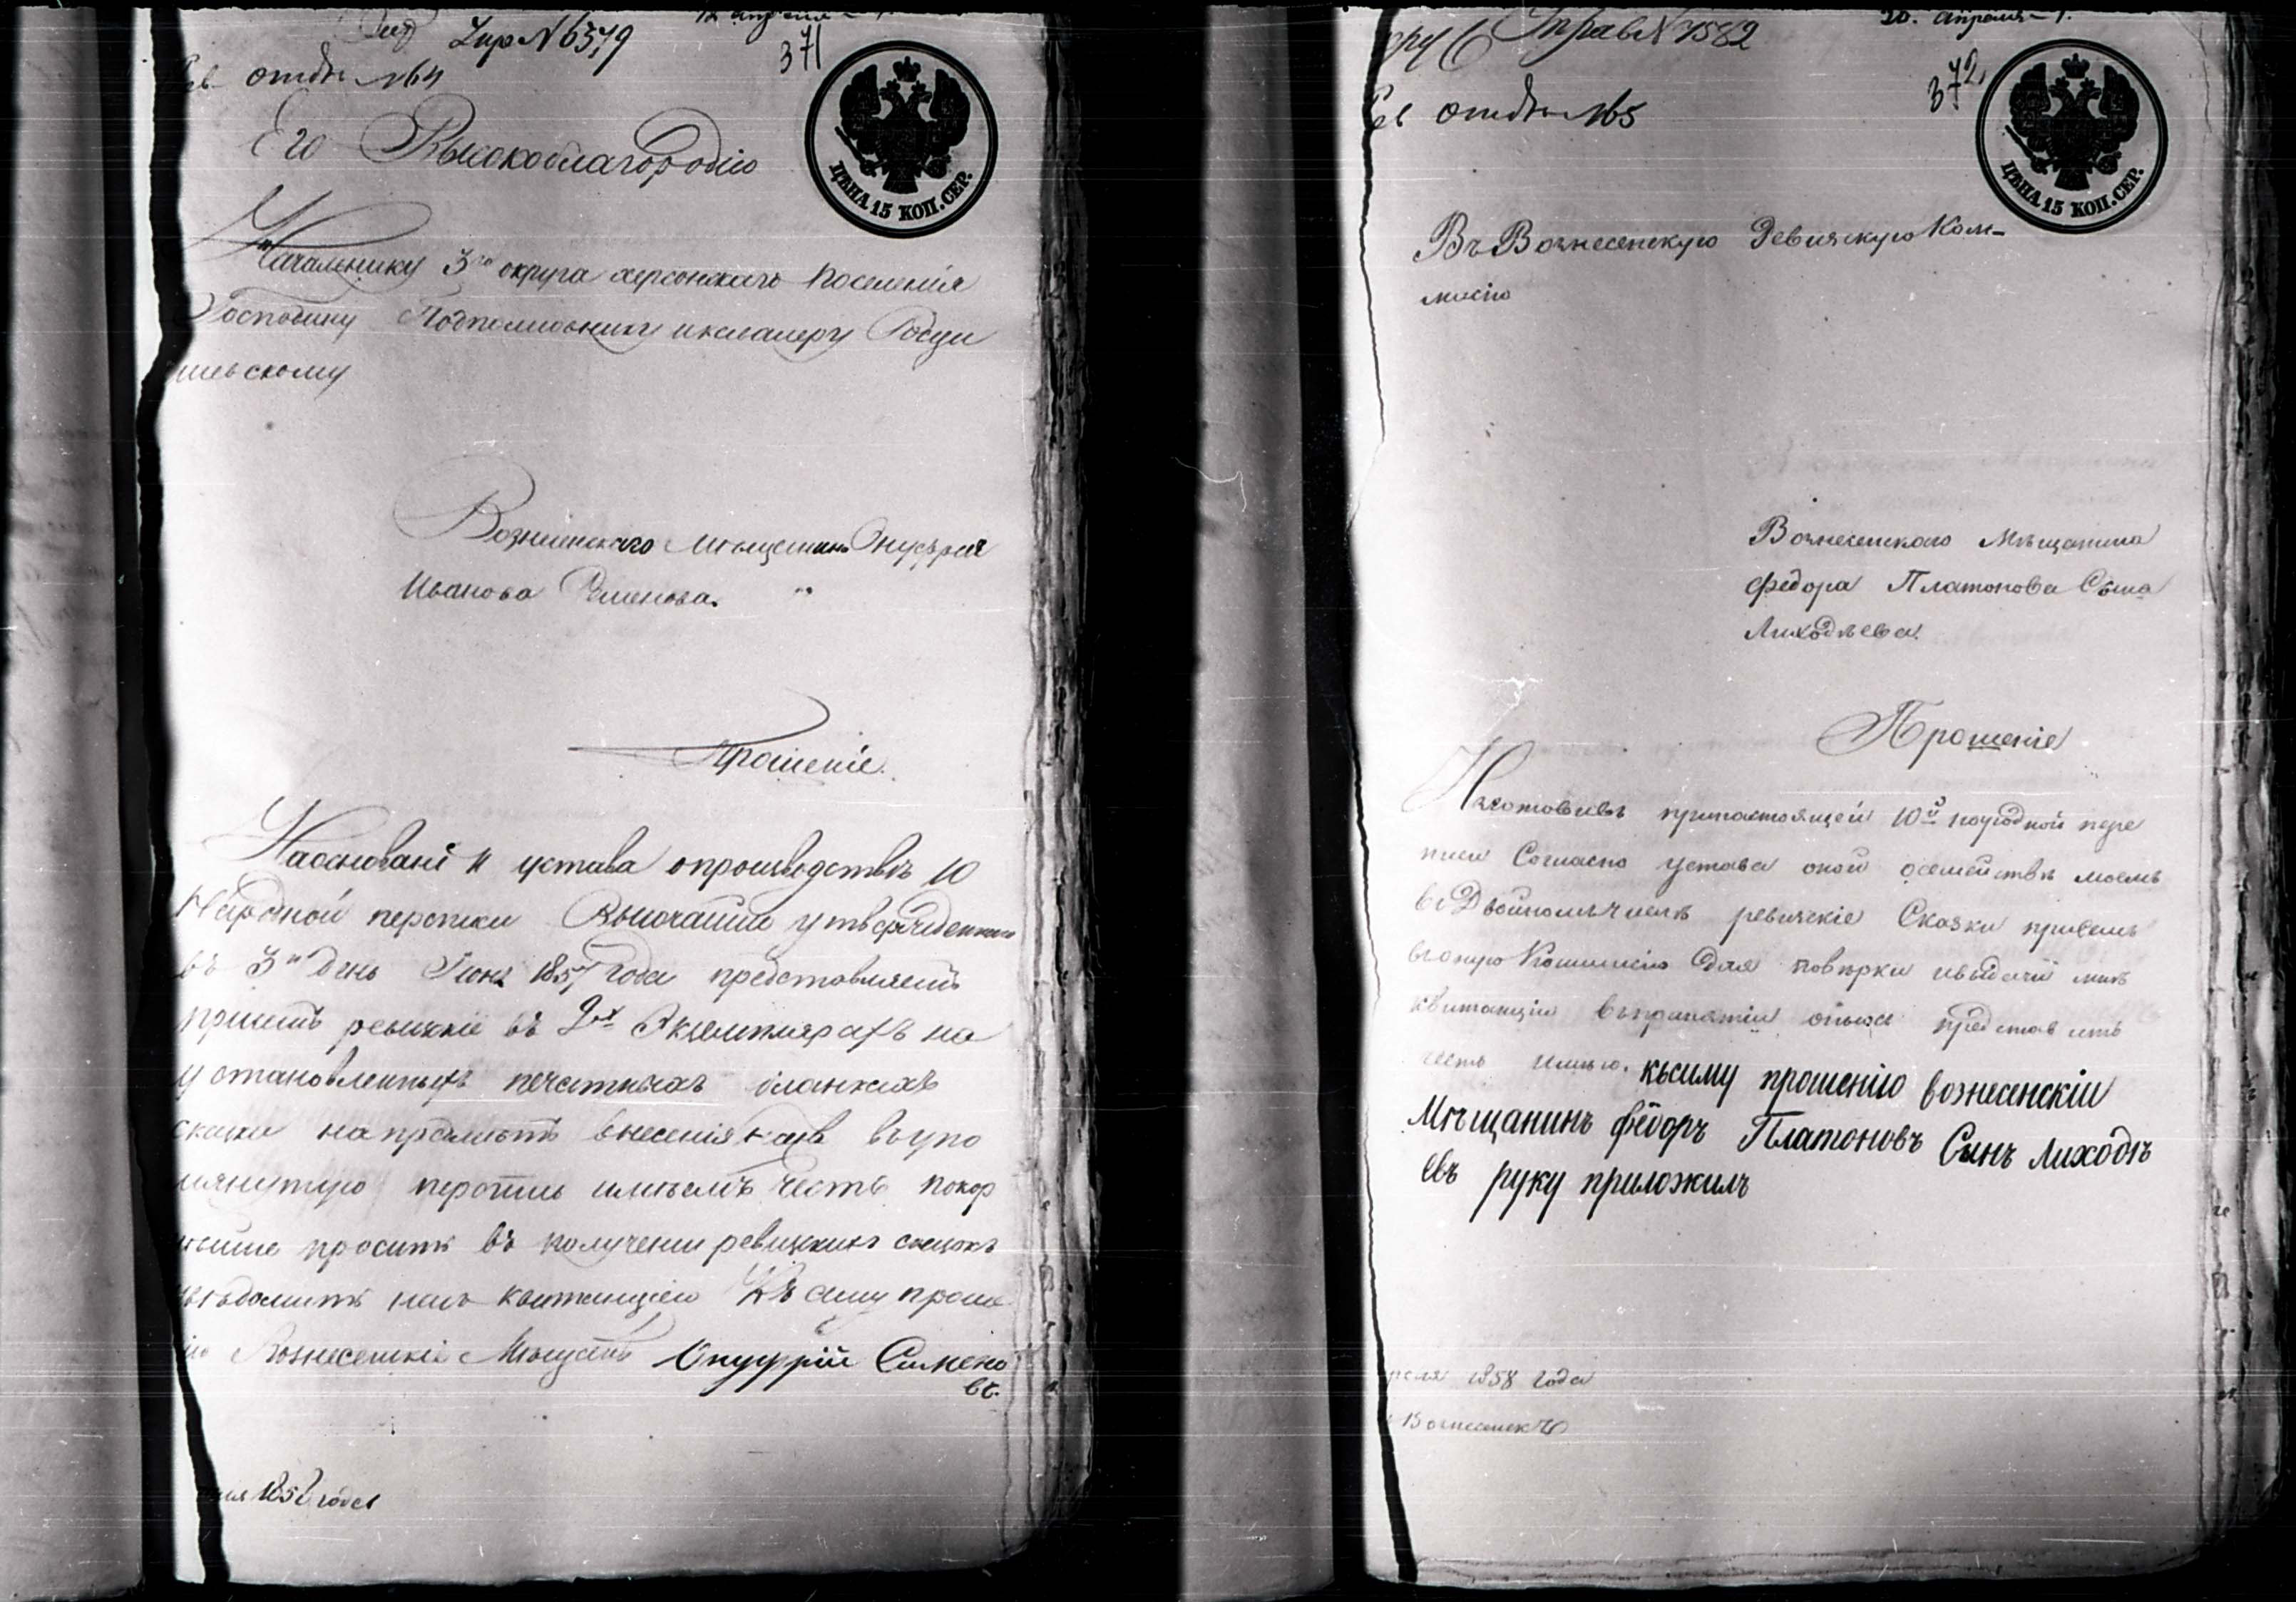 12 апреля
371
отдѣ №64
Его Высокоблагородію
ЦѢНА 15 КОП. СЕР.
Начальнику 3го округа херсонскаго поселенія
Господину Подполковнику и кавалеру
скому
Вознесенского Мѣщанина Онуфрея
Иванова Семенова.
Прошеніе.
На основаніи устава о производствѣ 10
Народной переписи Высочайше утвержденнаго
въ 3й день Іюня 1857 года представляетъ
ревизкіе въ 2х Экземплярахъ на
установленныхъ печатныхъ бланкахъ
скаски на предметъ внесенія въ упо
мянутую перепись имѣемъ честь покор
нейше просить въ полученіи ревизкихъ сказокъ
квитанціею Къ сему проше
нію Вознесенскіе Мѣщанинъ Онуфрій Симено
въ.
1858 года
20. апреля
Справ № 1582
372
отдѣ №65
ЦѢНА 15 КОП. СЕР.
Въ Вознесенскую Ревизкую Ком-
мисію
Вознесенского Мѣщанина
Федора Платонова Сына
Лиходѣева.
Прошеніе
Изготовивъ при настоящей 10й народной пере
писи Согласно устава оной о семействѣ моемъ
въ Двойномъ числѣ ревизскіе Сказки при семъ
въ оную Комисію для повѣрки и выдачи мнѣ
квитанціи въ принятіи оныхъ представить
честь имѣю. къ симу прошенію вознесенскіи
Мѣщанинъ Фёдоръ Платоновъ Сынъ Лиходѣ
евъ руку приложилъ
реля 1858 года
Вознесенскъ